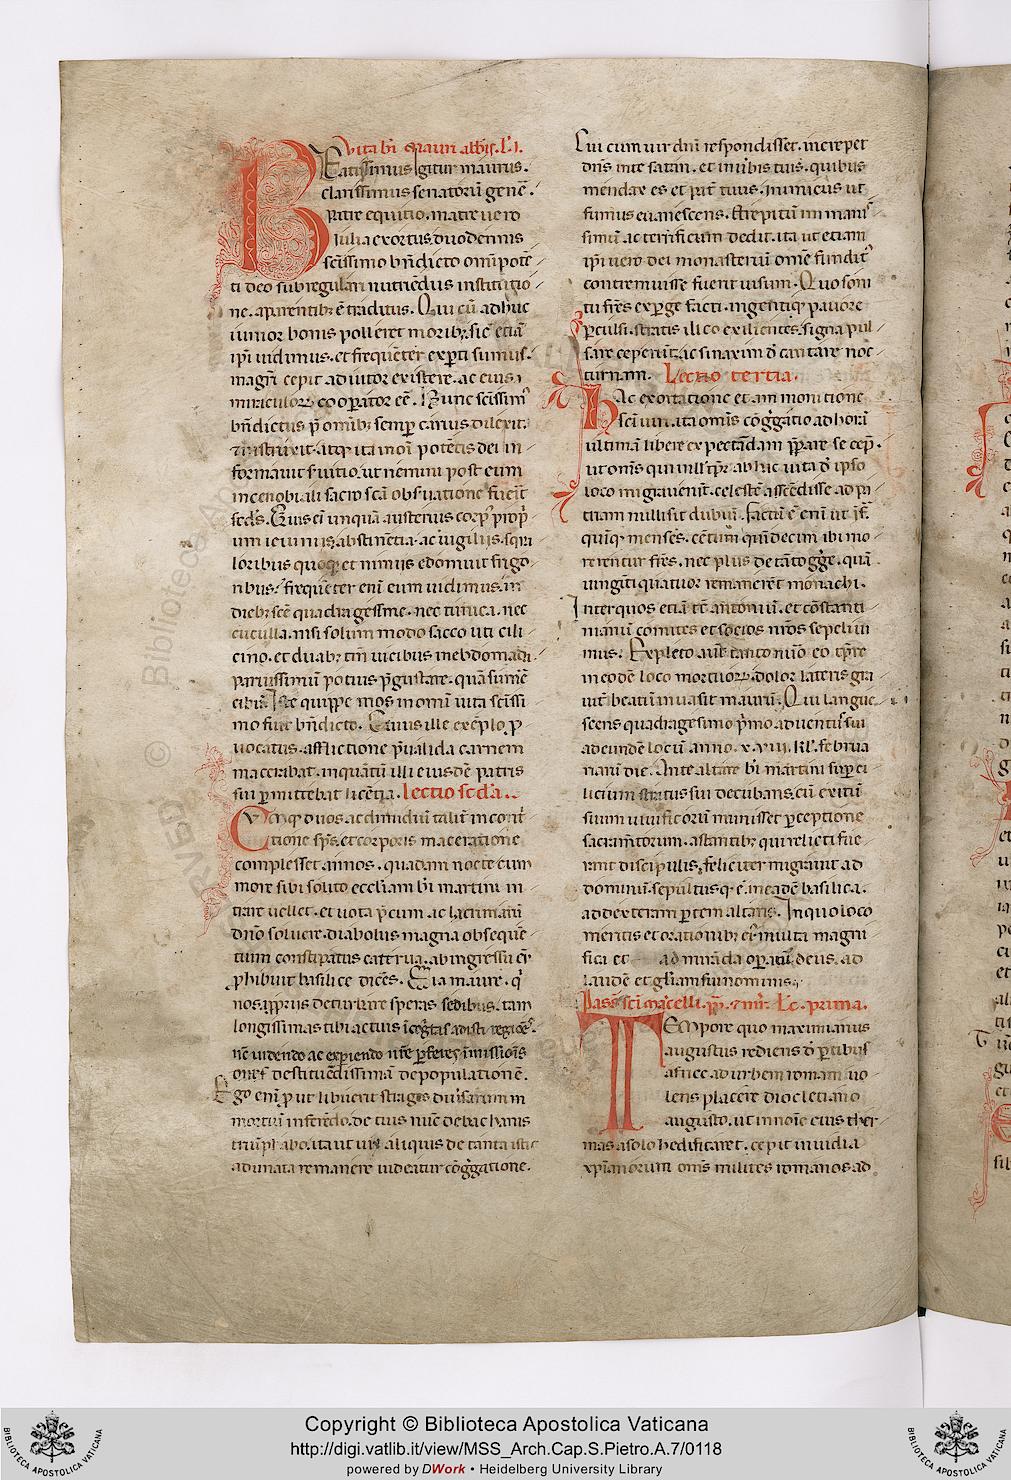 Vita bi Mauri abbis. L. I.
Eatissimus igitur maurus.
clarissimus senatorū genē.
Patre equitio. matre uero
Iulia exortus. duodennis
scissimo bn̄dicto om̄ipotē
ti deo sub regulari nutriēdus institutio
ne. a parentibꝫ ē traditus. Qui cū adhuc
iunior bonis polleret moribꝫ. sic̄ etiā
ipi uidimus. et frequēter exp̄ti sumus.
magr̄i cepit adiutor existere. ac eius
miraculorꝝ cooꝑator eē. Nunc scissimꝰ
bn̄dictus p̄ omībꝫ semꝑ carius dilexit.
informauit ꝑuitio. ut nemini post eum
in cenobiali sacro scā obsꝑuatione fueīt
sedꝰs. Huius eī unquā austerius corpꝰ ꝓpꝰ
um ieiuniis. abstinētia. ac uigiliis. sq̄ua
loribus quoqꝫ et nimiis edomuit frigo
ribus. frequēter enī eum uidimus. in
diebꝫ scē quadragessime. nec tunica. nec
cuculla. nisi solum modo sacco uti cili
cino. et duabꝫ tm̄ uicibus in ebdomada.
paruissimū potius p̄gustare. quā sumē
cibū. Iste quippe mos in om̄i uita scissi
mo fuit bn̄dicto. Cuius ille exēplo. ꝓ
uocatus. afflictione p̄ualida carnem
maceribat. in quātū illi eiusdē patris
sui ꝑmittebat licētia. Lectio scd̄a.
tione sps̄. et corporis maceratione
complesset annos. quadam nocte cum
more sibi solito eccliam bi martini in
trare uellet. et uota p̄cum ac lacrimarū
dno soluere. diabolus magna obsequē
tium constipatus caterua. ab ingressu eꝰ
ꝓhibuit basilice dicēs. Eia maure. qꝰ
nos ꝓpriis deturbare speras sedibus. tam
longissimas tibi actuꝰ
nē uidendo ac experiendo
destituēdissimā depopulationē.
Ego enī put libuerit stragis diuꝰsarum in
mortrū inferēdo. de tuis nūc debachanis
triūphabo. ita ut uix aliquis de tanta istic
adunata remanere uideatur cōgḡatione.
Cui cum uir dn̄i respondisset. increpet
dn̄s in te satan. et in uꝰbis tuis. quibus
mendax es et patꝰ tuus. inimicus ut
fumus euanescens. strepitū immanis
simū ac terrificum dedit. ita ut etiam
ipi uero dei monasteriū omē funditꝰ
contremuisse fuerit uisum. Quo soni
tu frs̄ experge facti. ingentiqꝫ pauore
ꝑculsi. stratis ilico exilientes. signa pul
sare ceperunt. ac sinaxim d̄ cantare noc
turnam. Lectio tertia.
Hac exortatione et ammonitione
sci uiri. ita omīs cōgḡatio ad horā
ultimā libere expectādam ꝓparare se cep̄.
ut omīs qui illi tꝑr ab hac uita d̄ ipso
loco migrauerīt. celestē ascēdisse ad pa
triam nulli sit dubiū. Factū ē enī ut
quīqꝫ menses. cētum quīdecim ibi mo
rerentur frs̄. nec plus de tāto gḡe. quā
uiginti quatuor remanerēt monachi.
Inter quos etiā tē antoniū. et cōstanti
nianū comites et socios nr̄os sepeliui
mus. Expleto aut̄ tanto nūo eo tꝑre
in eodē loco mortuorꝝ. dolor lateris gra
uit̄ beatū inuasit maurū. Qui langue
scens quadragesimo p̄mo aduentus sui
ad eundē locū anno. x. viii. kl. februa
riarū die. Ante altare bi martini suꝑ ci
licium stratus sui decubans. cū exitū
suum uiuificorū munisset ꝑceptione
sacramētorum. astantibꝫ qui relicti fue
rant discipulis. feliciter migrauit ad
dominū. sepultusqꝫ ē. in eadē basilica.
ad dexteram ꝑtem altaris. In quo loco
meritis et orationibꝫ eiꝰ multa magni
fici et admirāda oꝑatur deus. ad
laudē et gl̄iam sui nominis.
Pass̄ sci marcelli. pp̄. ⁊ mr̄. Lc̄. prima.
Tempore quo maximianus
augustus rediens d̄ ꝑtibus
africe ad urbem romam uo
lens placere diocletiano
augusto. ut in noīe eius ther
mas a solo hedificaret. cepit inuidia
xp̄ianorum om̄s milites romanos ad
Copyright © Biblioteca Apostolica Vaticana
http://digi.vatlib.it/view/MSS_Arch.Cap.S.Pietro.A.7/0118
powered by DWork • Heidelberg University Library